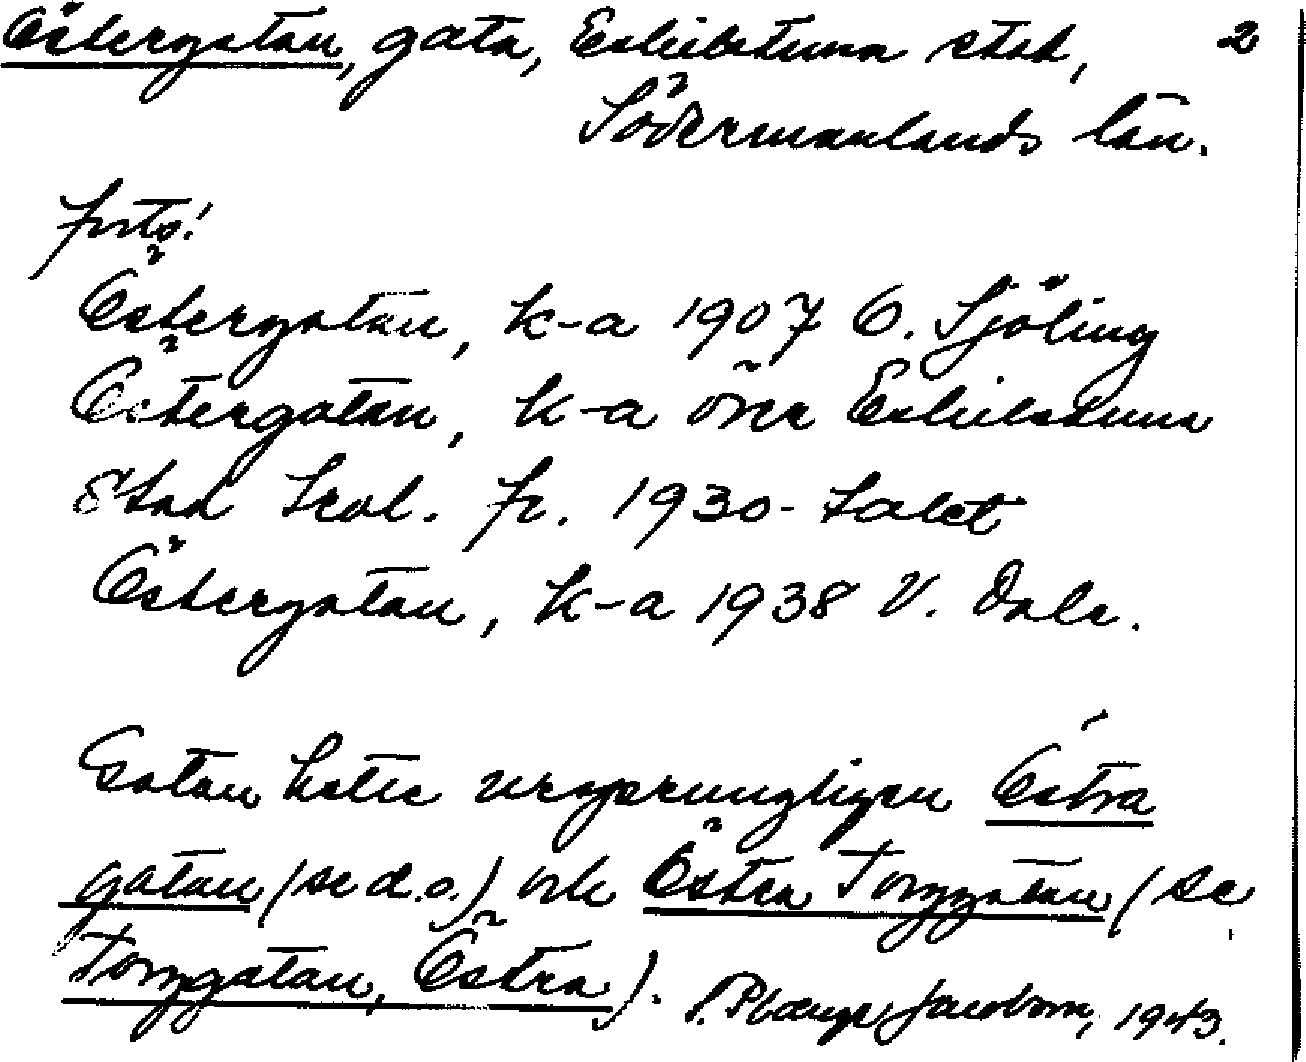 Östergatan, gata, Eskilstuna stad, 2
Södermanlands län.
forts!
Östergatan, k-a 1907 O. Sjöling
Östergatan, k-a över Eskilstuna
stad fr. 1930-talet
Östergatan, k-a 1938 V. Dale.
Gatan hette ursprungligen Östra
gatan (se d.o.) och Östra Torggatan (se
Torggatan, Östra).
Jacobson, 1943.